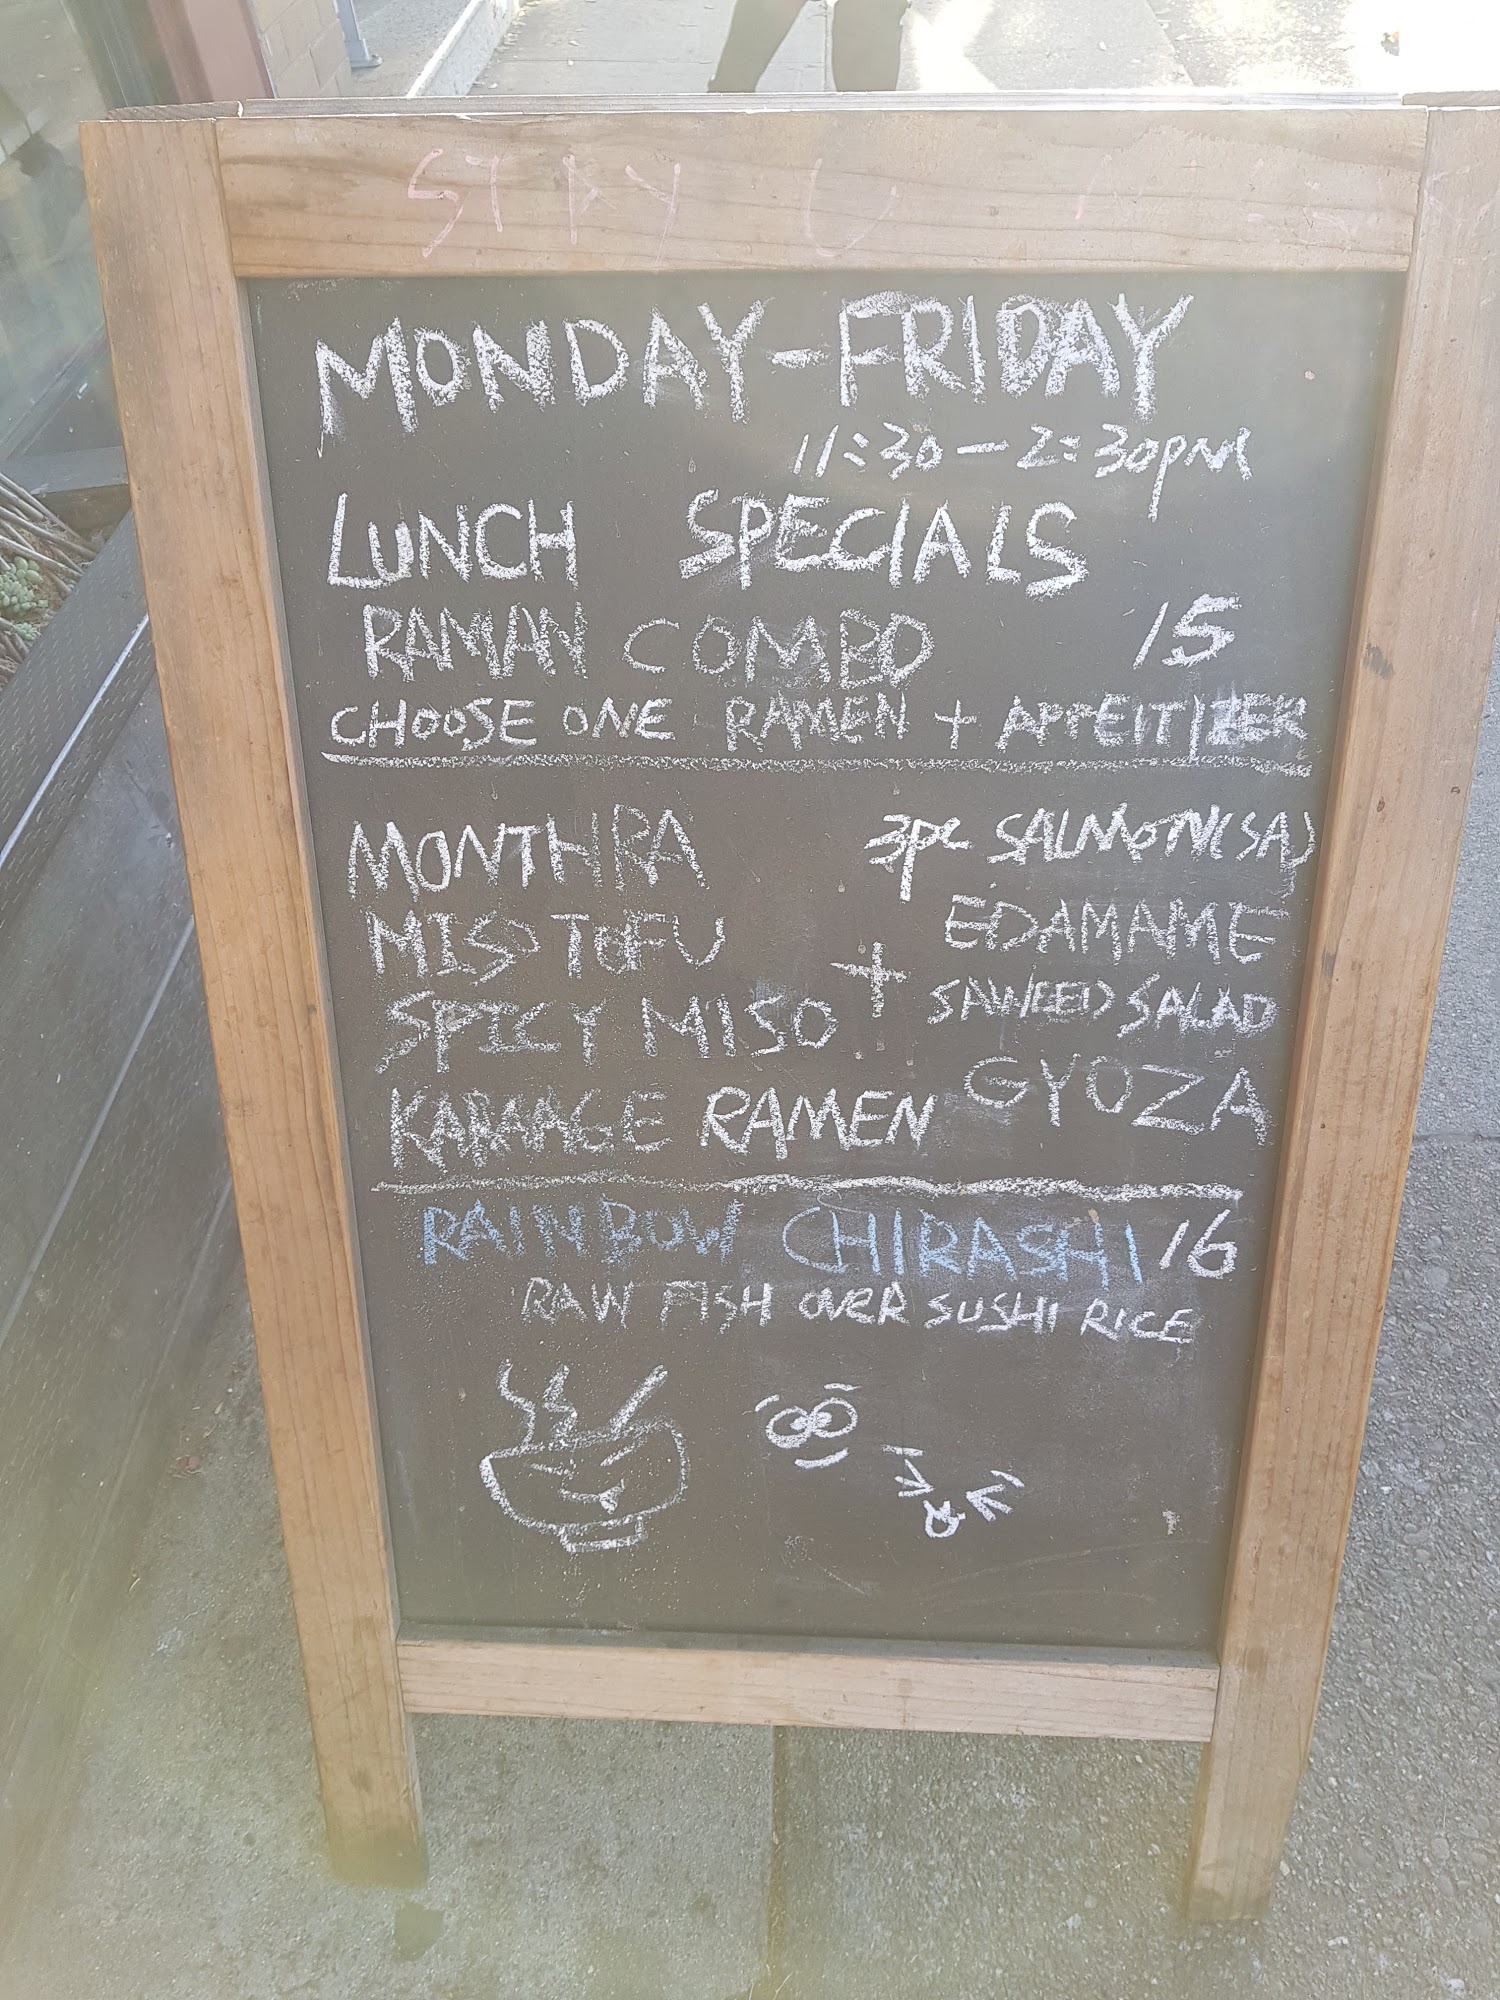 STAY
MONDAY-FRIDAY
11:30-2:30PM
LUNCH SPECIALS
RAMAN COMBO 15
CHOOSE ONE RAMEN + APPEITIZER
MONTHRA 3pc SALMON(SA)
MISO TOFU EDAMAME
+ SAWEED SALAD
SPICY MISO
GYOZA
KARAAGE RAMEN
RAINBOW CHIRASHI 16
RAW FISH OVER SUSHI RICE